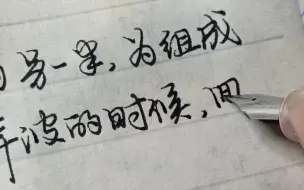 另一半,为组成
波的时候,